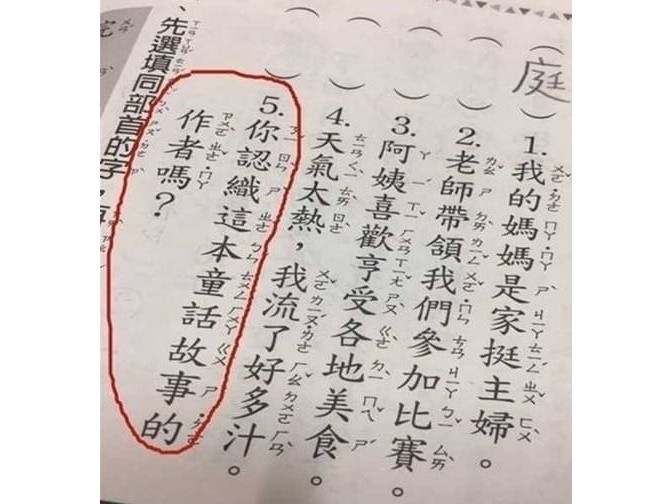 (庭) 1. 我的媽媽是家挺主婦。
( ) 2. 老師帶領我們參加比賽。
( ) 3. 阿姨喜歡亨受各地美食。
( ) 4. 天氣太熱，我流了好多汁。
( ) 5. 你認織這本童話故事的
作者嗎？
、先選填同部首的字，再